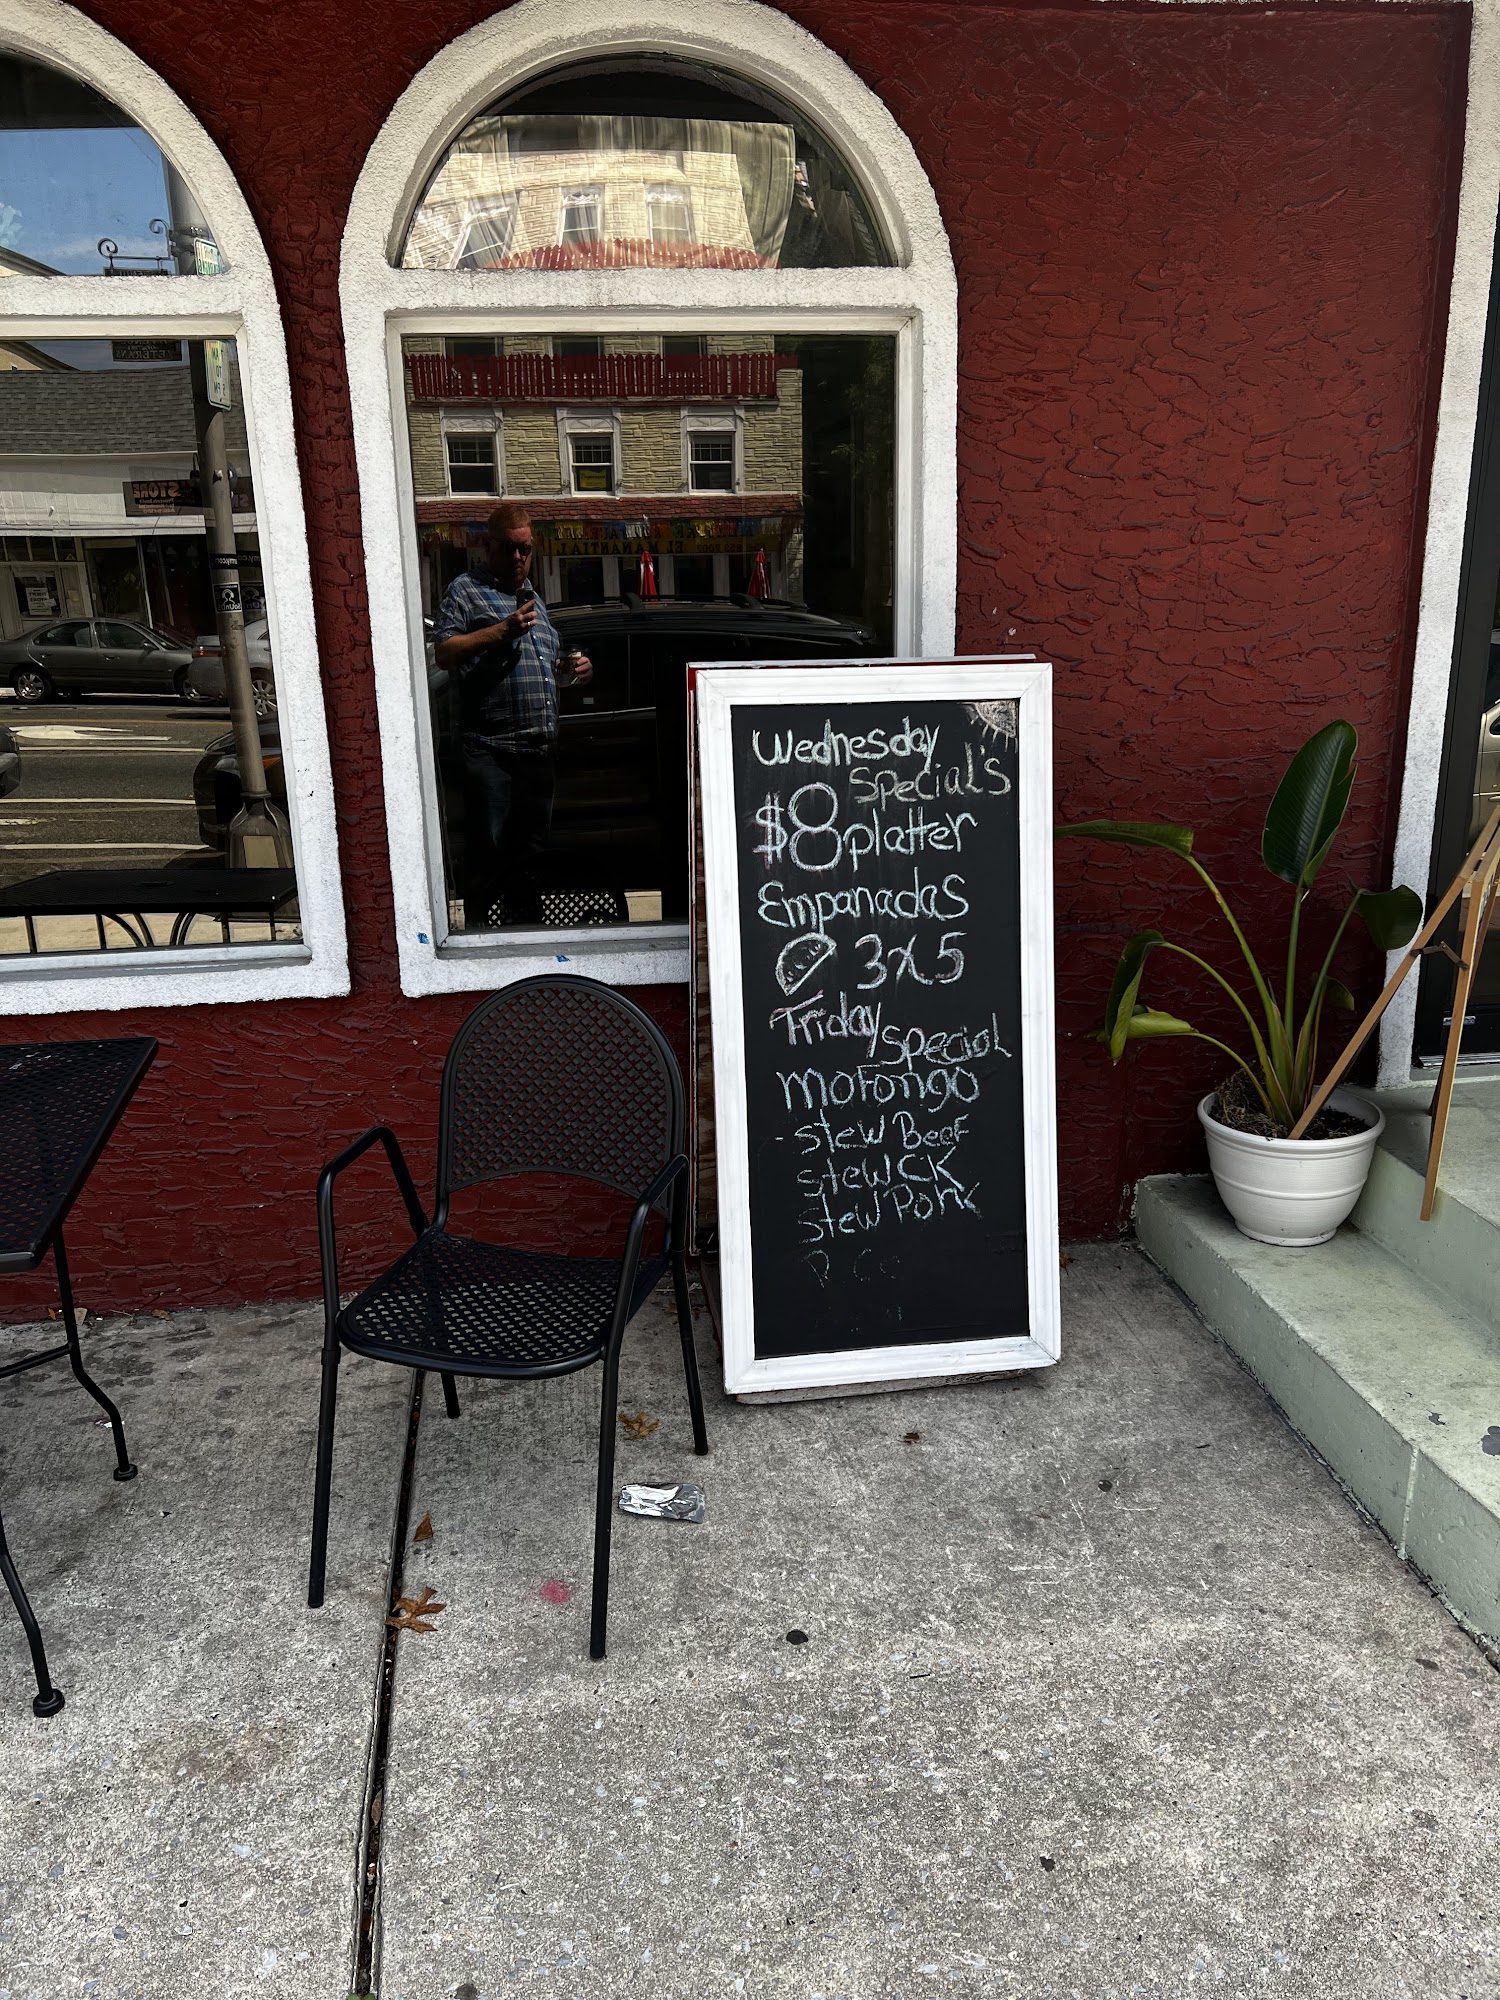 Wednesday
Special's
$8 platter
Empanadas
3x5
Friday
Special
Mofongo
- Stew Beef
Stew CK
Stew Pork
STORE
EL MANANTIAL